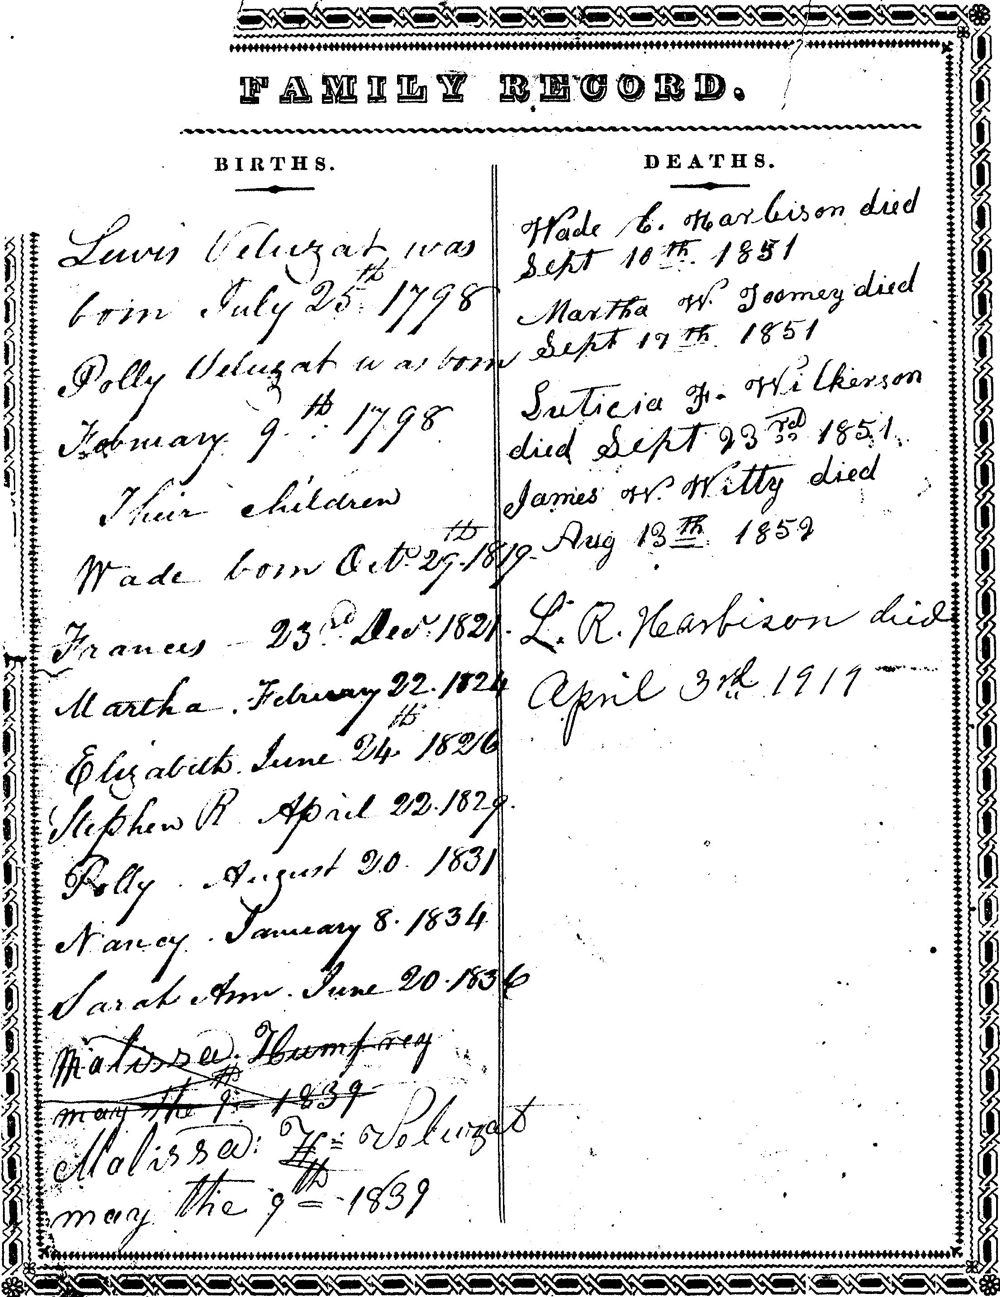 FAMILY RECORD.
BIRTHS.
Lewis Veluzat was
born July 25th 1798
Polly Veluzat was born
February 9th 1798
Their children
Wade born Oct. 29th 1819
Frances - 23rd Decr. 1821.
Martha. February 22. 1824
Elizabeth. June 24th 1826
Stephen R April 22. 1829.
Polly. August 20. 1831
Nancy. January 8. 1834
Sarah Ann. June 20. 1836
Malissa. Humfrey
may the 9th 1839
Malissa: H= Veluzat
may the 9th 1839
DEATHS.
Wade C. Harbison died
Sept 10th. 1851
Martha W. Toomey died
Sept 17th 1851
Luticia F. Wilkerson
died Sept 23rd 1851.
James W. Witty died
Aug 13th 1852
L. R. Harbison died
April 3rd 1919